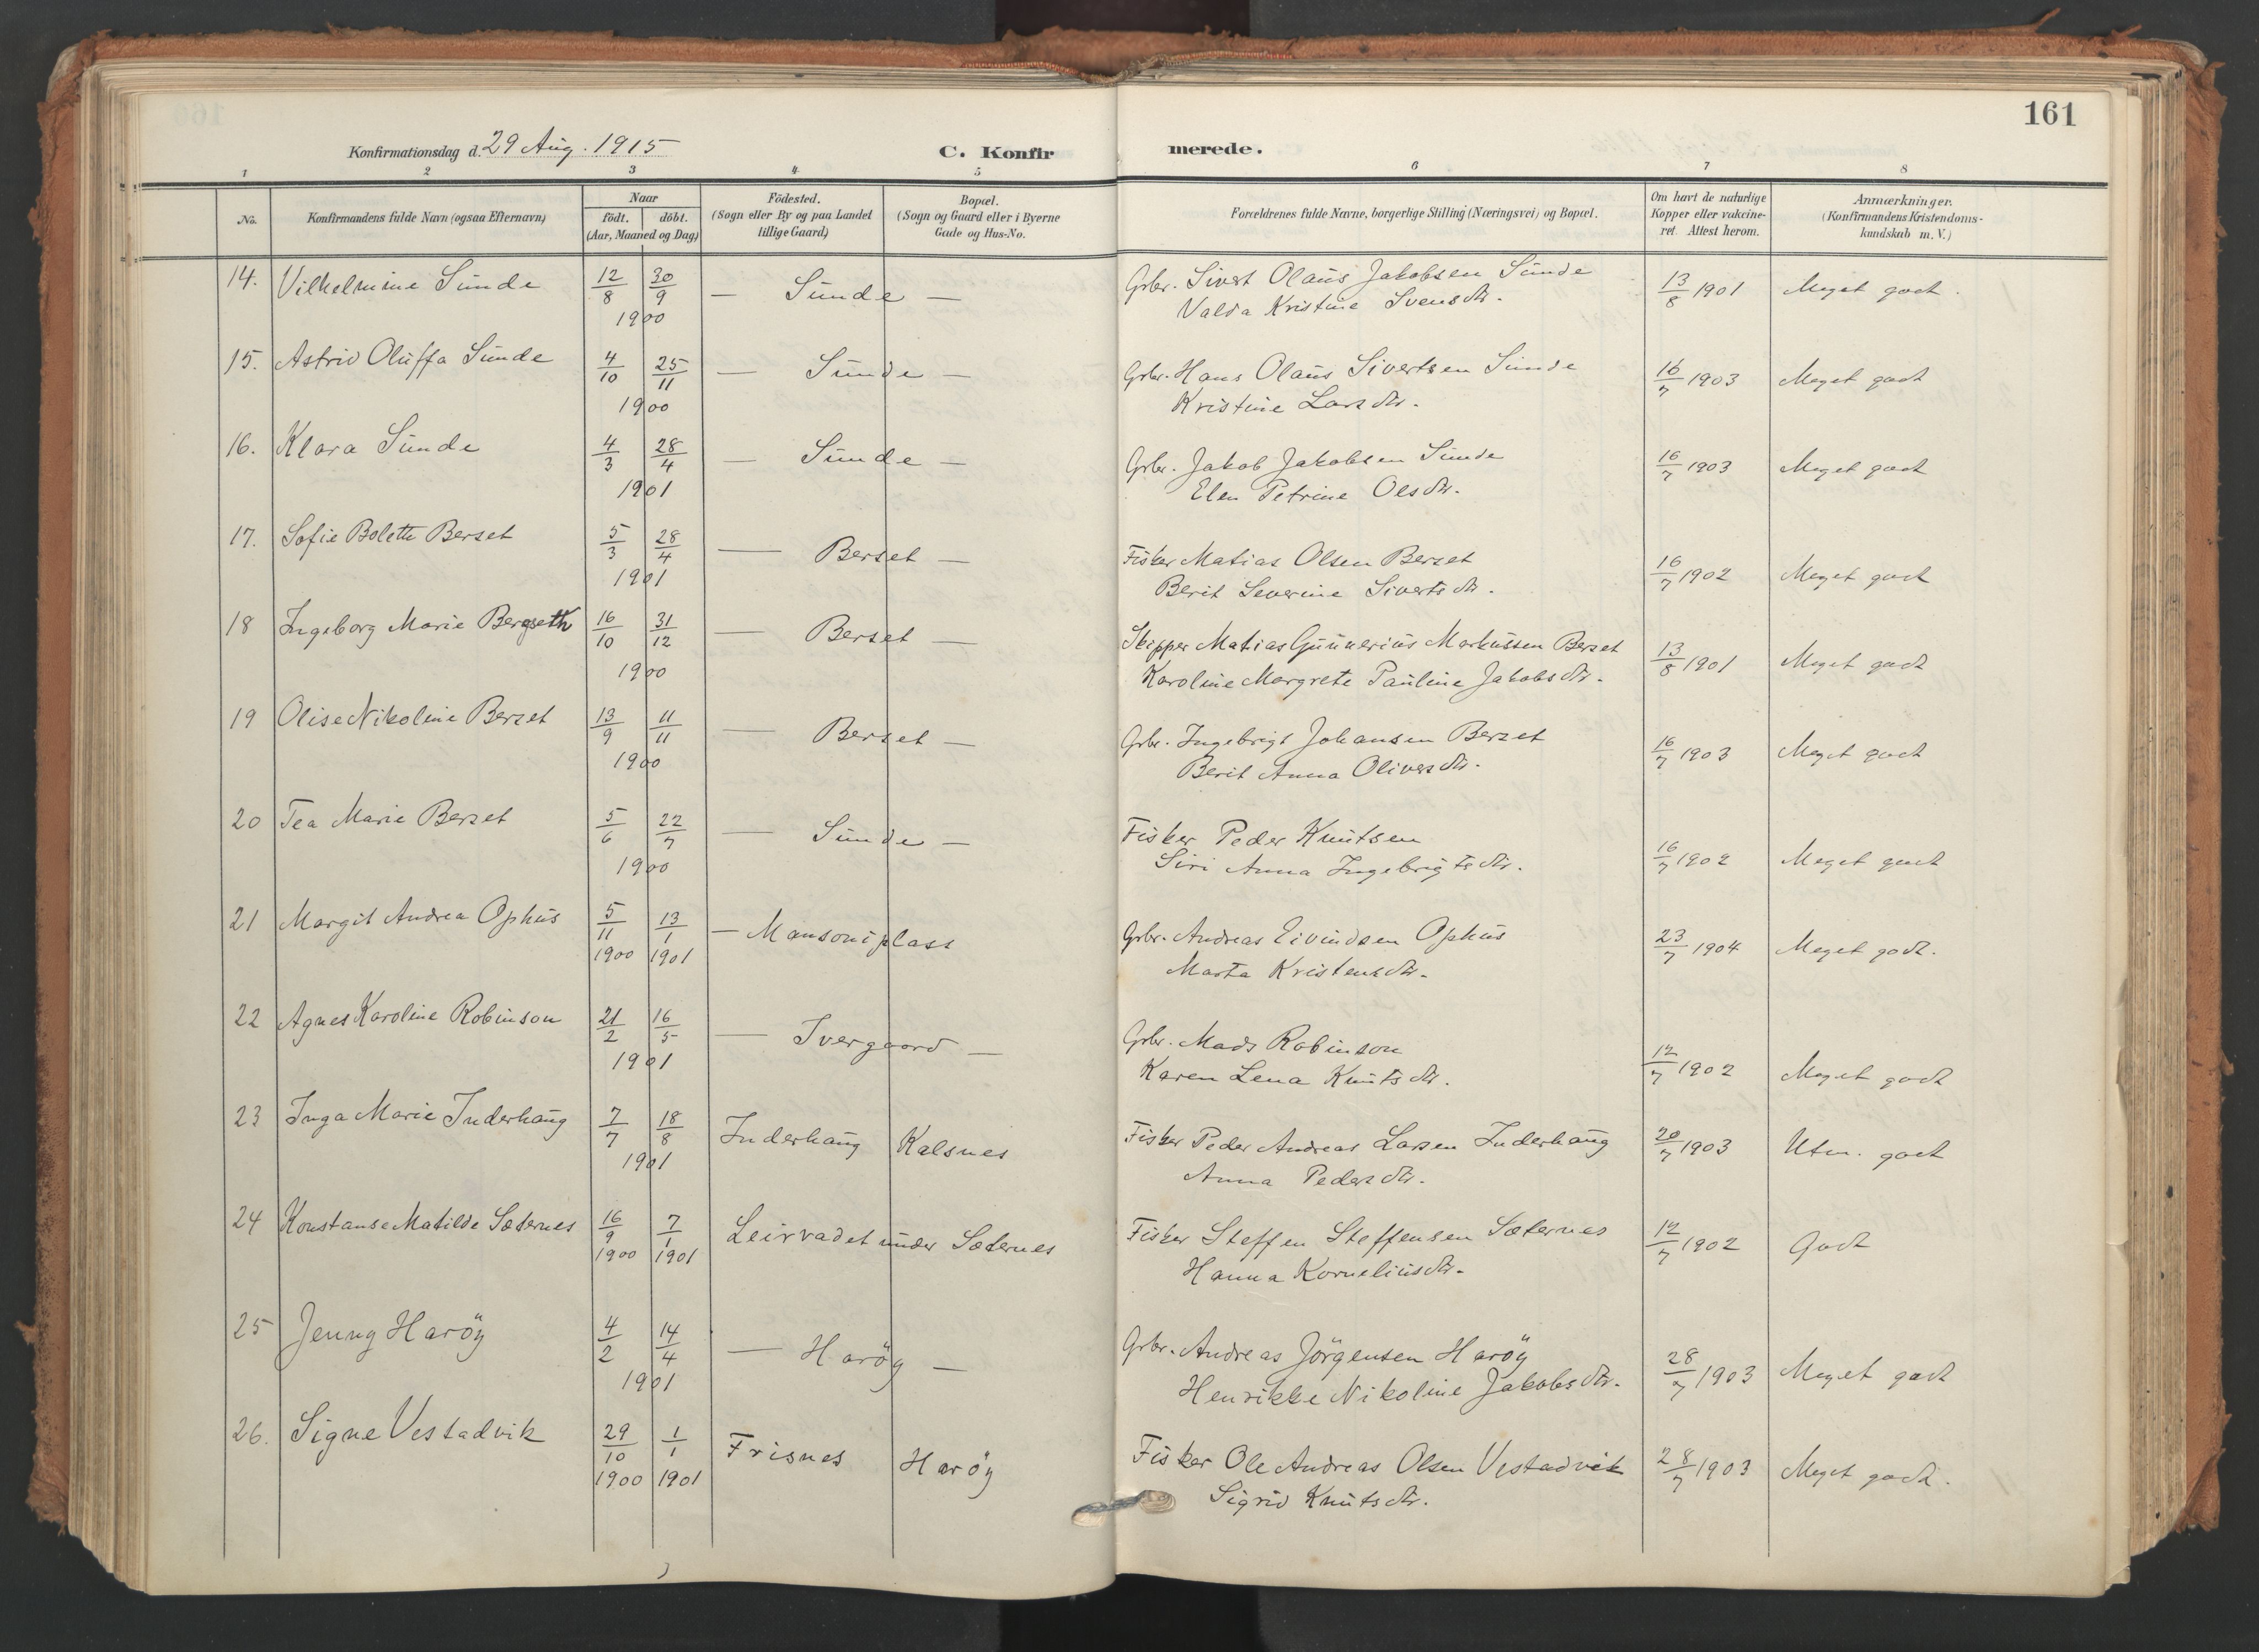 161
Konfirmationsdag d. 29 Aug. 1915 C. Konfirmerede.
1 2 3 4 5 6 7 8
No. Konfirmandens fulde Navn (ogsaa Efternavn) Naar födt. döbt. (Aar, Maaned og Dag) Födested. (Sogn eller By og paa Landet tillige Gaard) Bopæl. (Sogn og Gaard eller i Byerne Gade og Hus-No. Forældrenes fulde Navne, borgerlige Stilling (Næringsvei) og Bopæl. Om havt de naturlige Kopper eller vakcineret. Attest herom. Anmærkninger. (Konfirmandens Kristendomskundskab m. V.)
14. Vilhelmine Sunde 12/8 30/9 1900 — Sunde — Grbr. Sivert Olaus Jakobsen Sunde 13/8 1901 Meget godt.
Valda Kristine Svensdtr.
15. Astrid Oluffa Sunde 4/10 25/11 1900 — Sunde — Grbr. Hans Olaus Sivertsen Sunde 16/7 1903 Meget godt
Kristine Larsdtr.
16. Klara Sunde 4/3 28/4 1901 — Sunde — Grbr. Jakob Jakobsen Sunde 16/7 1903 Meget godt
Elen Petrine Olsdtr.
17. Sofie Bolette Berset 5/3 28/4 1901 — Berset — Fisker Matias Olsen Berset 16/7 1902 Meget godt
Berit Severine Sivertsdtr.
18 Ingeborg Marie Bergseth 16/10 31/12 1900 — Berset — Skipper Matias Gunnerius Markussen Berset 13/8 1901 Meget godt
Karoline Margrete Pauline Jakobsdtr.
19 Olise Nikoline Berset 13/9 11/11 1900 — Berset — Grbr. Ingebrigt Johansen Berset 16/7 1903 Meget godt
Berit Anna Oliversdtr.
20 Tea Marie Berset 5/6 22/7 1900 — Sunde — Fisker Peder Knutsen 16/7 1902 Meget godt
Siri Anna Ingebrigtsdtr.
21 Margit Andrea Ophus 5/11 1900 13/1 1901 — Mansoniplass Grbr. Andreas Eivindsen Ophus 23/7 1904 Meget godt.
Marta Kristensdtr.
22 Agnes Karoline Robinson 21/2 16/5 1901 — Ivergaard — Grbr. Mads Robinson 12/7 1902 Meget godt
Karen Lena Knutsdtr.
23 Inga Marie Inderhaug 7/7 18/8 1901 Inderhaug Kalsnes Fisker Peder Andreas Larsen Inderhaug 20/7 1903 Utm. godt
Anna Pedersdtr.
24 Konstanse Matilde Sæternes 16/9 1900 7/1 1901 Leirvadet under Sæternes Fisker Steffen Steffensen Sæternes 12/7 1902 Godt
Hanna Korneliusdtr.
25 Jenny Haröy 4/2 14/4 1901 — Haröy — Grbr. Andreas Jörgensen Haröy 28/7 1903 Meget godt
Henrikke Nikoline Jakobsdtr.
26. Signe Vestadvik 29/10 1900 1/1 1901 Frisnes Haröy Fisker Ole Andreas Olsen Vestadvik 28/7 1903 Meget godt.
Sigrid Knutsdtr.